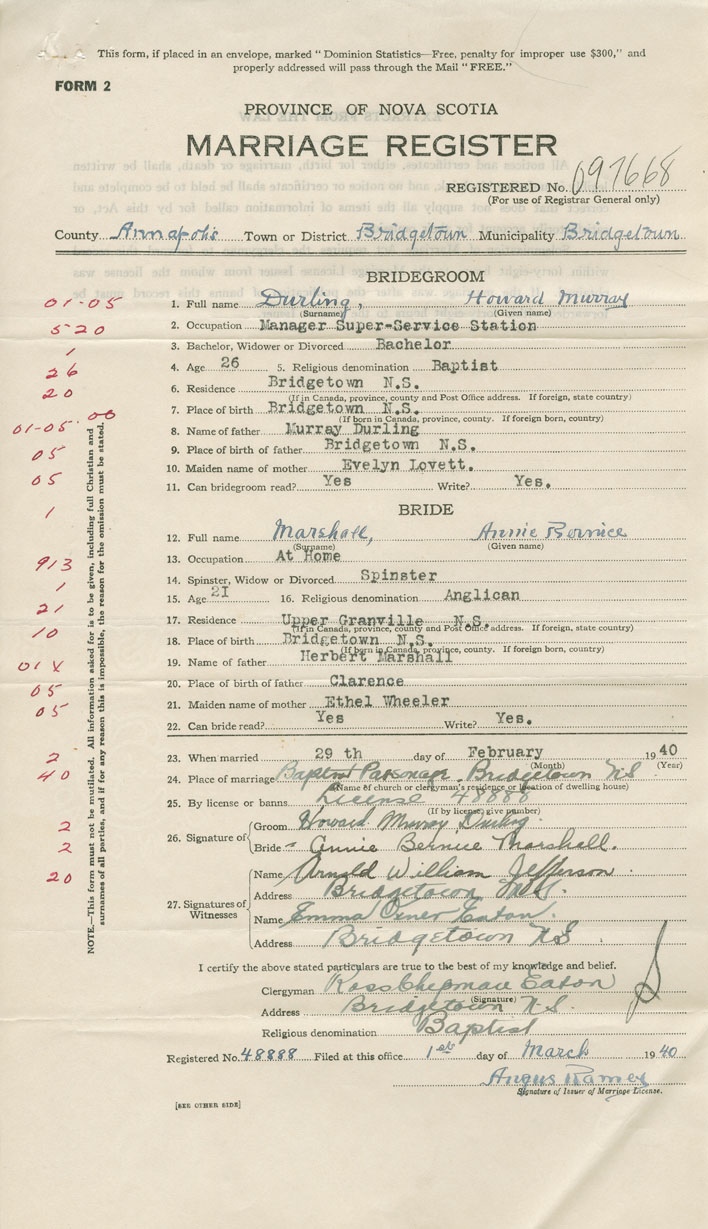 This form, if placed in an envelope, marked "Dominion Statistics—Free, penalty for improper use $300," and
properly addressed will pass through the Mail "FREE."
FORM 2
PROVINCE OF NOVA SCOTIA
MARRIAGE REGISTER
REGISTERED No. 097668
(For use of Registrar General only)
County Annapolis Town or District Bridgetown Municipality Bridgetown
BRIDEGROOM
01-05 1. Full name Durling, Howard Murray
(Surname) (Given name)
520 2. Occupation Manager Super-Service Station
1 3. Bachelor, Widower or Divorced Bachelor
26 4. Age 26 5. Religious denomination Baptist
20 6. Residence Bridgetown N.S.
(If in Canada, province, county and Post Office address. If foreign, state country)
01-05-00 7. Place of birth Bridgetown N.S.
(If born in Canada, province, county. If foreign born, country)
8. Name of father Murray Durling
05 9. Place of birth of father Bridgetown N.S.
05 10. Maiden name of mother Evelyn Lovett.
1 11. Can bridegroom read? Yes Write? Yes.
BRIDE
12. Full name Marshall, Annie Bernice
(Surname) (Given name)
913 13. Occupation At Home
1 14. Spinster, Widow or Divorced Spinster
21 15. Age 21 16. Religious denomination Anglican
10 17. Residence Upper Granville N.S.
(If in Canada, province, county and Post Office address. If foreign, state country)
18. Place of birth Bridgetown N.S.
(If born in Canada, province, county. If foreign born, country)
01X 19. Name of father Herbert Marshall
05 20. Place of birth of father Clarence
05 21. Maiden name of mother Ethel Wheeler
22. Can bride read? Yes Write? Yes.
2 23. When married 29 th day of February 1940
(Month) (Year)
40 24. Place of marriage Baptist Parsonage, Bridgetown NS
(Name of church or clergyman's residence or location of dwelling house)
25. By license or banns License 48888
(If by license, give number)
2 26. Signature of Groom Howard Murray Durling
2 Bride Annie Bernice Marshall.
20 27. Signatures of Witnesses Name Arnold William Jefferson
Address Bridgetown N.S.
Name Emma Eaton.
Address Bridgetown NS
I certify the above stated particulars are true to the best of my knowledge and belief.
Clergyman Ross Chipman Eaton
(Signature)
Address Bridgetown N.S.
Religious denomination Baptist
Registered No. 48888 Filed at this office 1st day of March 1940
Angus Ramey
Signature of Issuer of Marriage License.
[SEE OTHER SIDE]
NOTE.—This form must not be mutilated. All information asked for is to be given, including full Christian and
surnames of all parties, and if for any reason this is impossible, the reason for the omission must be stated.